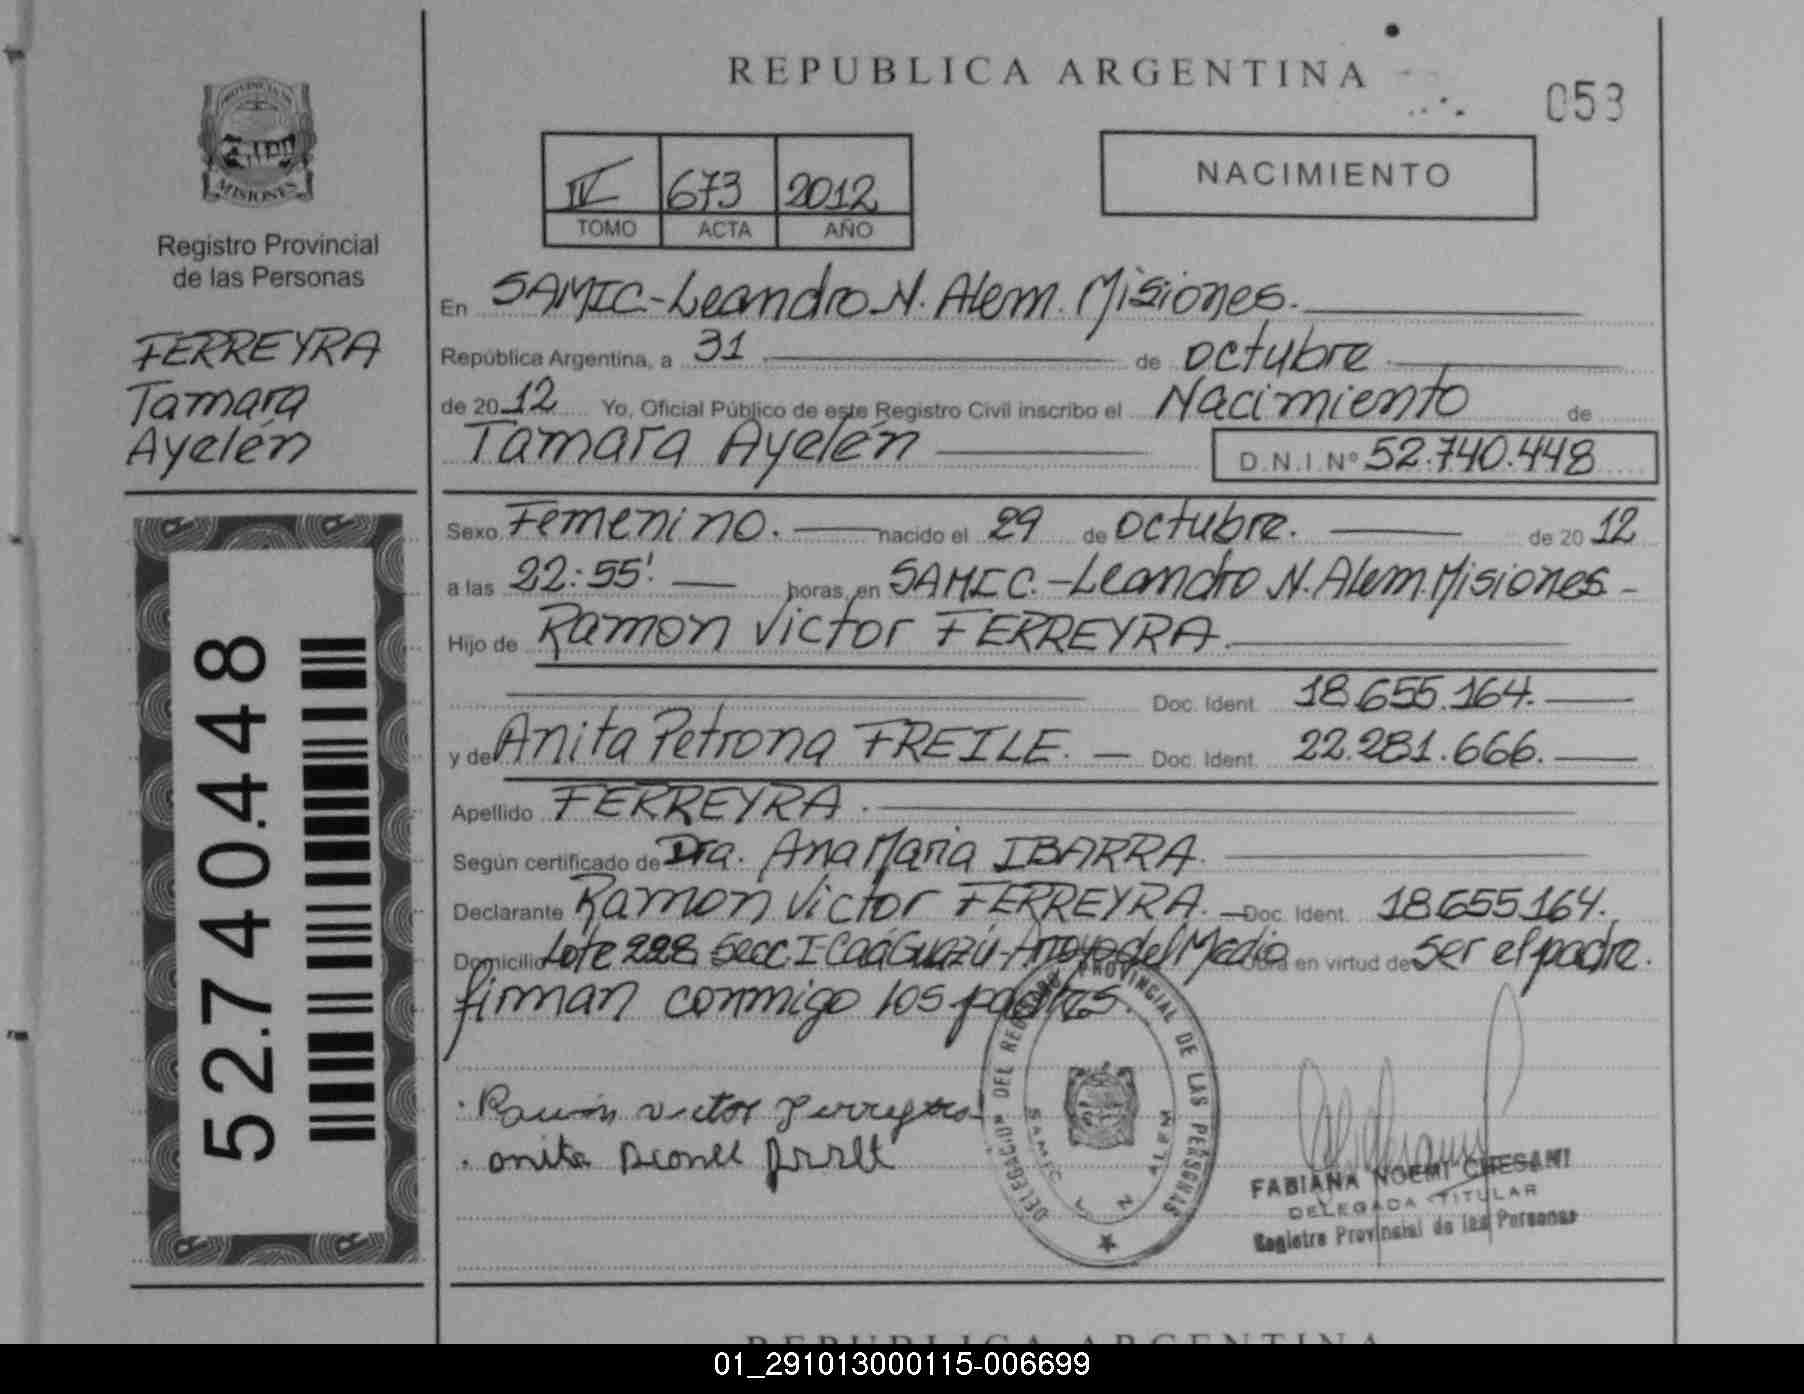 REPUBLICA ARGENTINA
053
PROVINCIA DE
MISIONES
Registro Provincial
de las Personas
FERREYRA
Tamara
Ayelén
52.740.448
IV 673 2012
TOMO ACTA AÑO
NACIMIENTO
En SAMIC-Leandro N. Alem. Misiones.
República Argentina, a 31 de octubre
de 2012 Yo, Oficial Público de este Registro Civil inscribo el Nacimiento de
Tamara Ayelén D.N.I Nº 52.740.448
Sexo Femenino. nacido el 29 de octubre. de 2012
a las 22:55'. horas, en SAMIC.-Leandro N. Alem. Misiones-
Hijo de Ramon Victor FERREYRA.
Doc. Ident. 18.655.164.
y de Anita Petrona FREILE. - Doc. Ident. 22.281.666.
Apellido FERREYRA.
Según certificado de Dra. Ana Maria IBARRA.
Declarante Ramon Victor FERREYRA. - Doc. Ident. 18.655.164.
Domicilio Lote 228 Secc I-Caá Guazú-Arroyo del Medio Obra en virtud de ser el padre.
firman conmigo los padres.
Ramón victor Ferreyra
anita
DELEGACION DEL REGISTRO PROVINCIAL DE LAS PERSONAS
SAMIC L N ALEM
FABIANA NOEMI CHESANI
DELEGADA TITULAR
Registro Provincial de las Personas
REPUBLICA ARGENTINA
01_291013000115-006699